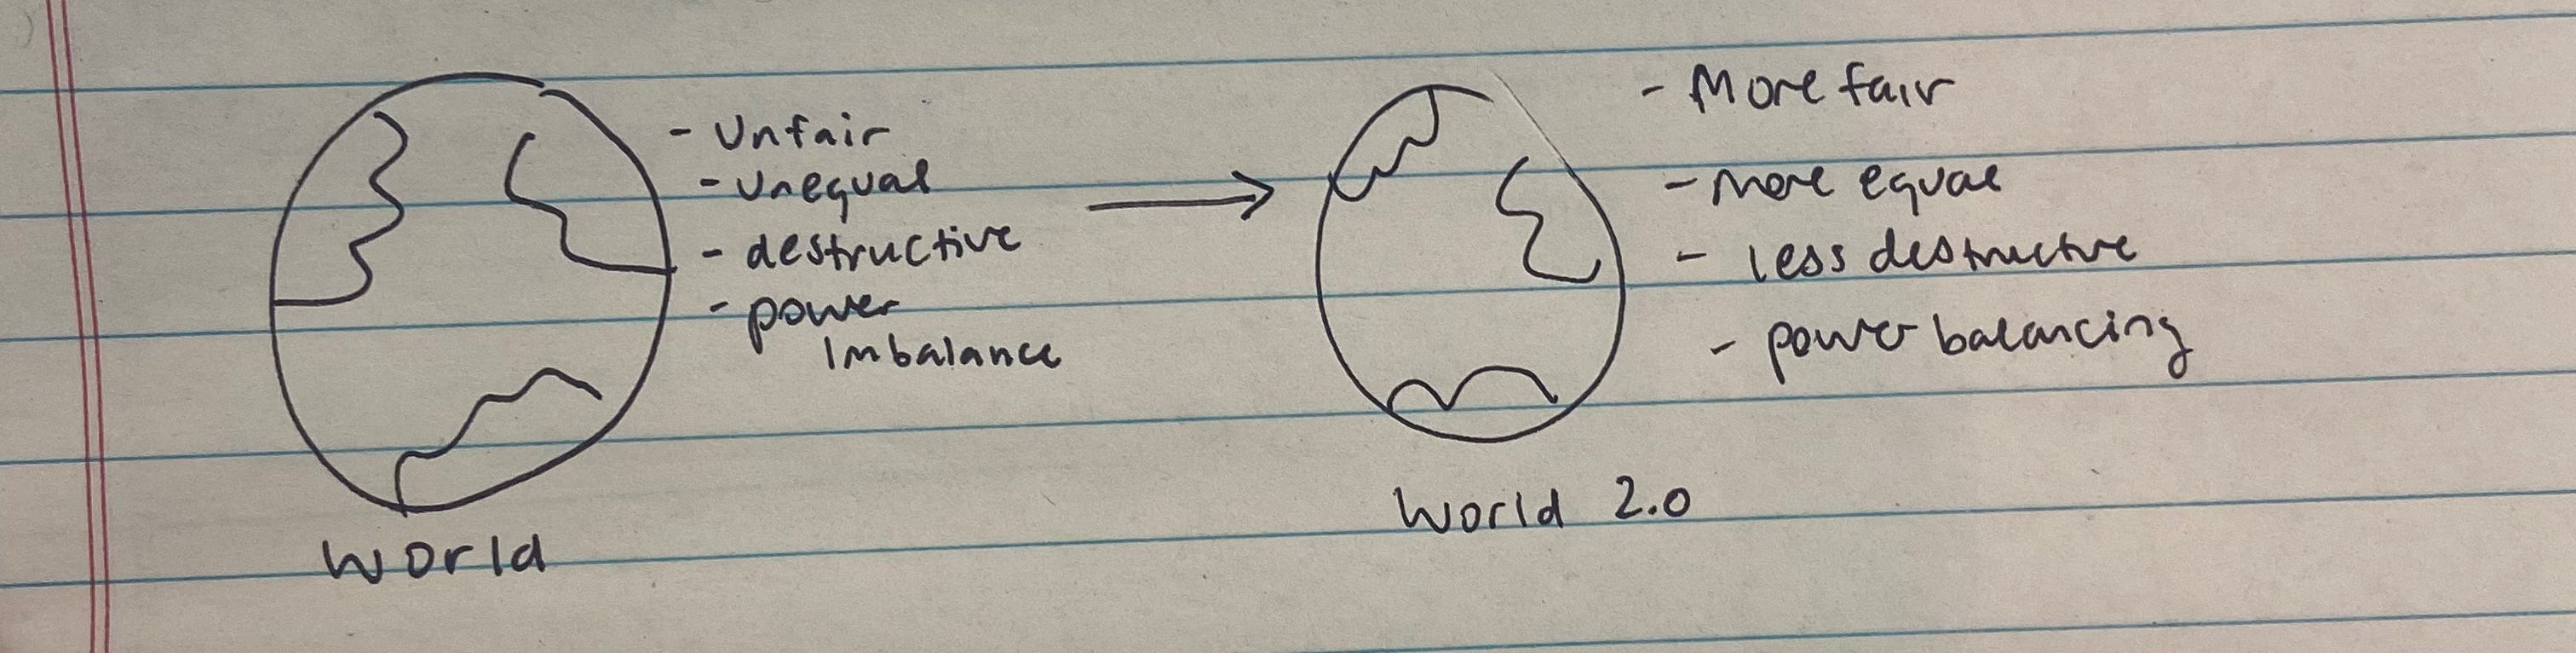 - Unfair
- Unequal
- destructive
- power
Imbalance
World
- More fair
- More equal
- less destructive
- power balancing
World 2.0